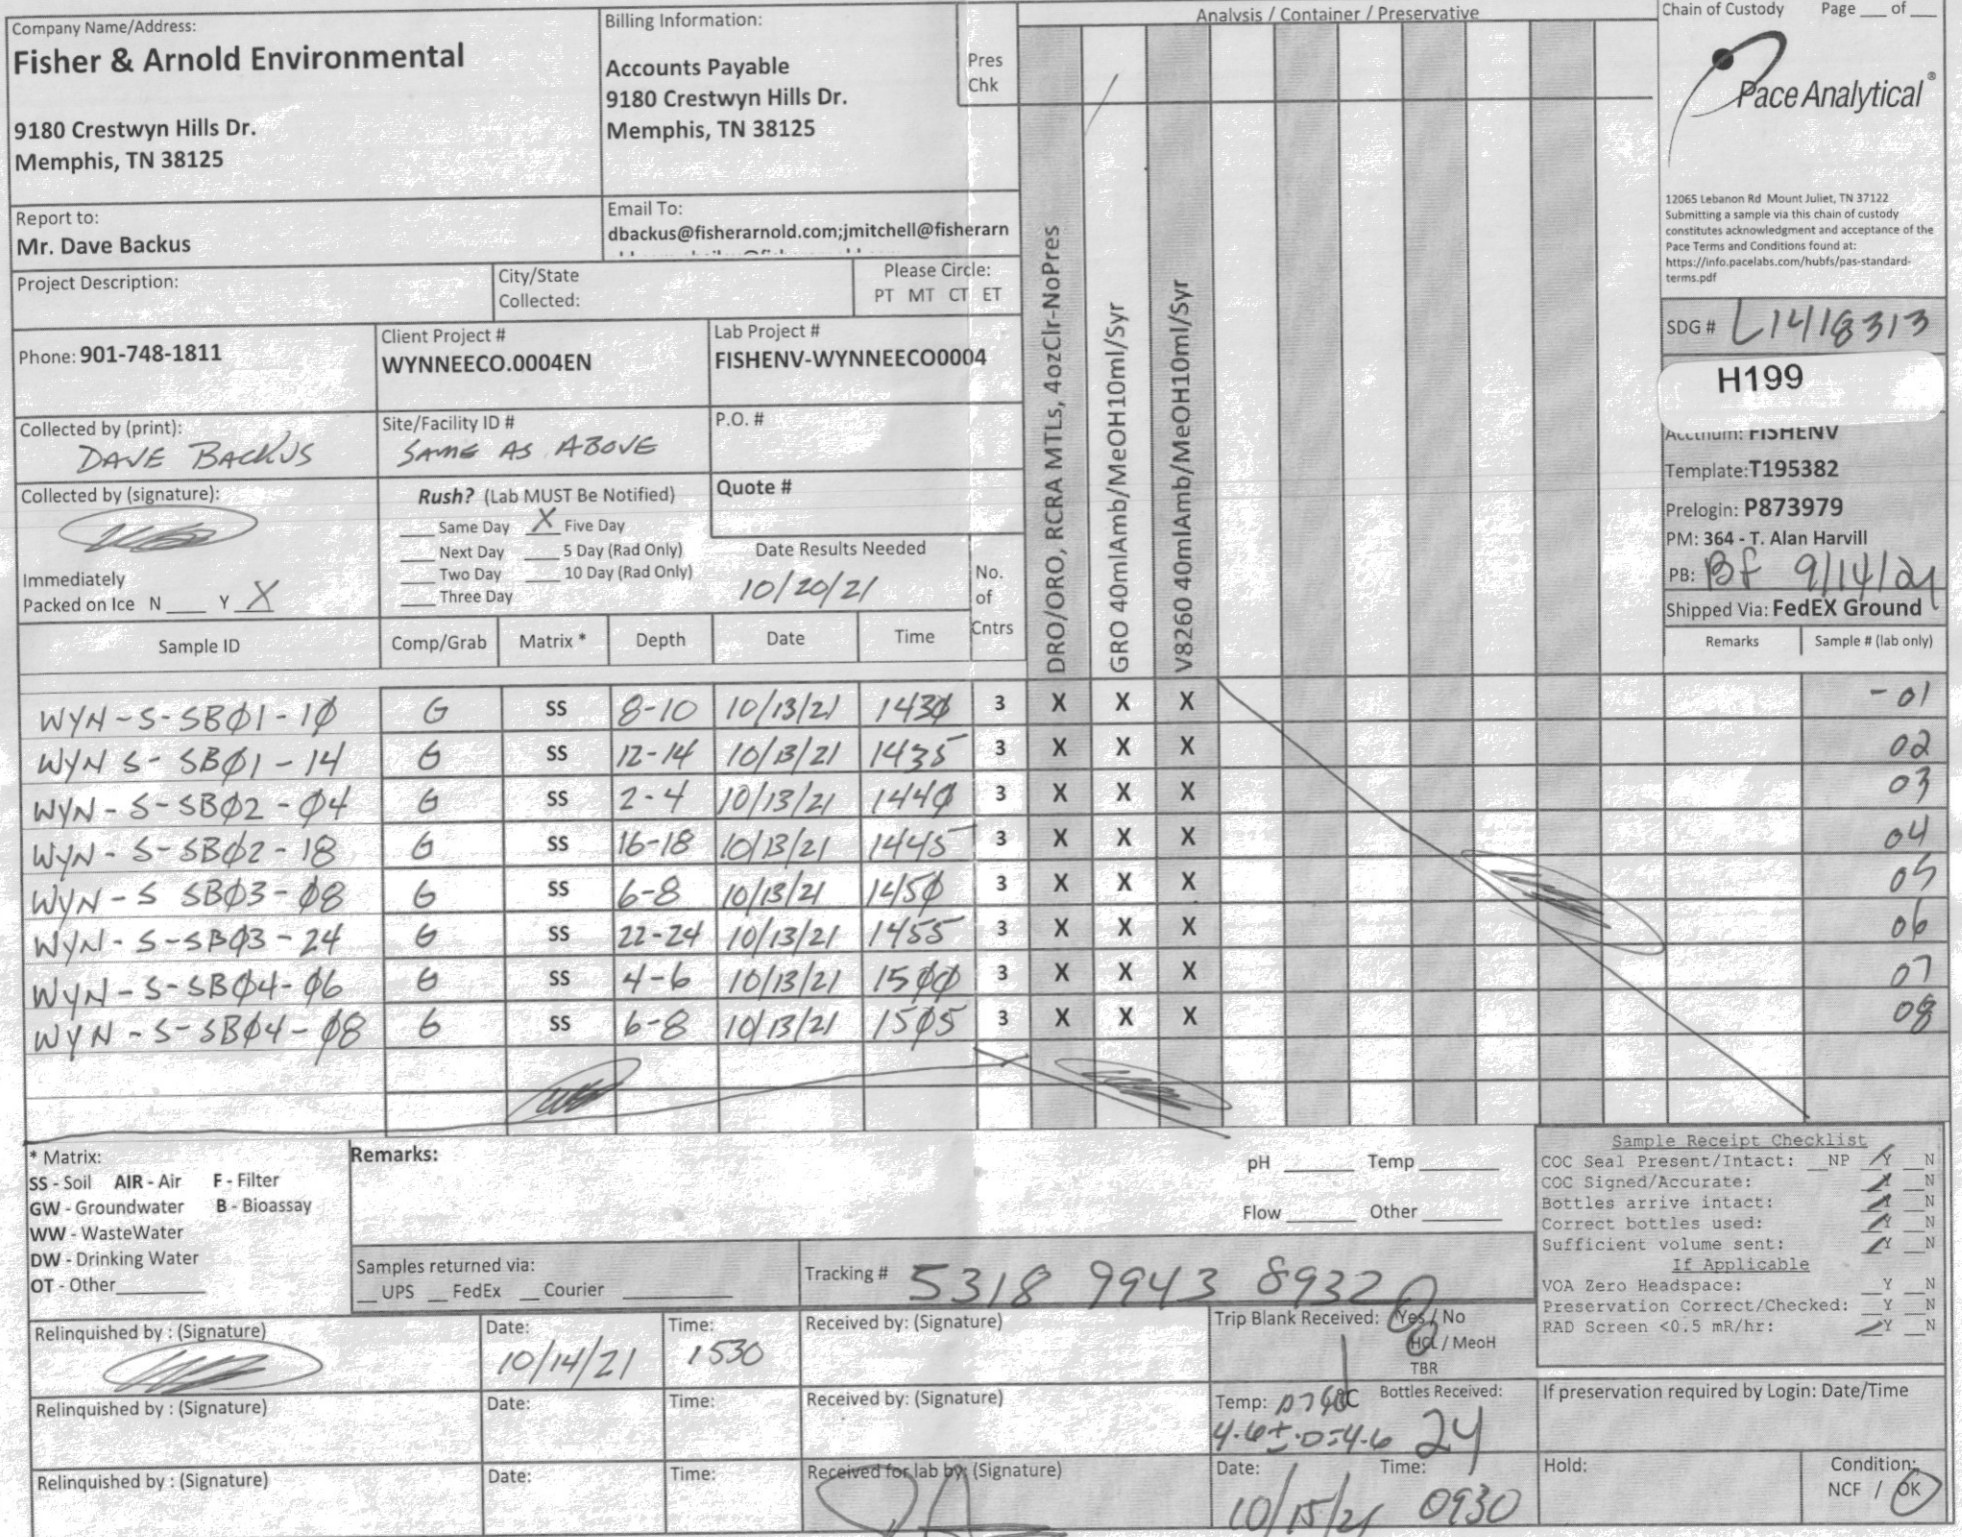 Company Name/Address:
Fisher & Arnold Environmental
9180 Crestwyn Hills Dr.
Memphis, TN 38125
Billing Information:
Accounts Payable
9180 Crestwyn Hills Dr.
Memphis, TN 38125
Pres
Chk
Analysis / Container / Preservative
Chain of Custody Page ___ of ___
Pace Analytical®
12065 Lebanon Rd Mount Juliet, TN 37122
Submitting a sample via this chain of custody
constitutes acknowledgment and acceptance of the
Pace Terms and Conditions found at:
https://info.pacelabs.com/hubfs/pas-standard-
terms.pdf
Report to:
Mr. Dave Backus
Email To:
dbackus@fisherarnold.com;jmitchell@fisherarn
Project Description:
City/State
Collected:
Please Circle:
PT MT CT ET
Phone: 901-748-1811
Client Project #
WYNNEECO.0004EN
Lab Project #
FISHENV-WYNNEECO0004
Collected by (print):
DAVE BACKUS
Site/Facility ID #
SAME AS ABOVE
P.O. #
Collected by (signature):
Rush? (Lab MUST Be Notified)
___ Same Day X Five Day
___ Next Day ___ 5 Day (Rad Only)
___ Two Day ___ 10 Day (Rad Only)
___ Three Day
Quote #
Date Results Needed
10/20/21
Immediately
Packed on Ice N ___ Y X
No.
of
Cntrs
DRO/ORO, RCRA MTLs, 4ozClr-NoPres
GRO 40mlAmb/MeOH10ml/Syr
V8260 40mlAmb/MeOH10ml/Syr
SDG # L1418313
H199
Acctnum: FISHENV
Template:T195382
Prelogin: P873979
PM: 364 - T. Alan Harvill
PB: BF 9/14/21
Shipped Via: FedEX Ground
Sample ID Comp/Grab Matrix * Depth Date Time Remarks Sample # (lab only)
WYN-S-SBØ1-1Ø G SS 8-10 10/13/21 143Ø 3 X X X -01
WYN S-SBØ1-14 G SS 12-14 10/13/21 1435 3 X X X 02
WYN-S-SBØ2-Ø4 G SS 2-4 10/13/21 144Ø 3 X X X 03
WYN-S-SBØ2-18 G SS 16-18 10/13/21 1445 3 X X X 04
WYN-S SBØ3-Ø8 G SS 6-8 10/13/21 145Ø 3 X X X 05
WYN-S-SBØ3-24 G SS 22-24 10/13/21 1455 3 X X X 06
WYN-S-SBØ4-Ø6 G SS 4-6 10/13/21 15ØØ 3 X X X 07
WYN-S-SBØ4-Ø8 G SS 6-8 10/13/21 15Ø5 3 X X X 08
* Matrix:
SS - Soil AIR - Air F - Filter
GW - Groundwater B - Bioassay
WW - WasteWater
DW - Drinking Water
OT - Other
Remarks:
pH ___ Temp ___
Flow ___ Other ___
Samples returned via:
__ UPS __ FedEx __ Courier
Tracking # 5318 9943 8932
Sample Receipt Checklist
COC Seal Present/Intact: __NP __Y __N
COC Signed/Accurate: __N
Bottles arrive intact: __N
Correct bottles used: __Y __N
Sufficient volume sent: __Y __N
If Applicable
VOA Zero Headspace: __Y __N
Preservation Correct/Checked: __Y __N
RAD Screen <0.5 mR/hr: __Y __N
Relinquished by : (Signature)
Date:
10/14/21
Time:
1530
Received by: (Signature)
Trip Blank Received: Yes / No
HCL / MeoH
TBR
Relinquished by : (Signature)
Date:
Time:
Received by: (Signature)
Temp: °C Bottles Received:
4.6±.0=4.6 24
If preservation required by Login: Date/Time
Relinquished by : (Signature)
Date:
Time:
Received for lab by: (Signature)
Date:
10/15/21
Time:
0930
Hold:
Condition:
NCF / OK